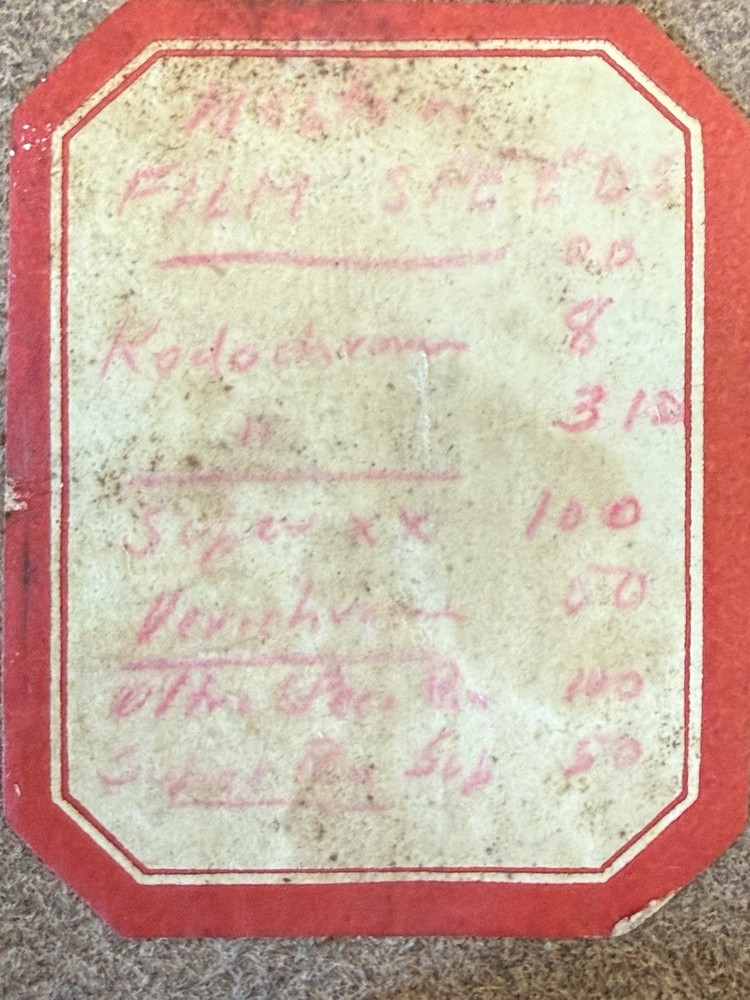 Weston
FILM SPEEDS
Kodochrom 8
" 3 1
Super XX 100
Verichrom 50
Ultra Speed Pan 100
Super Pan Sup 50